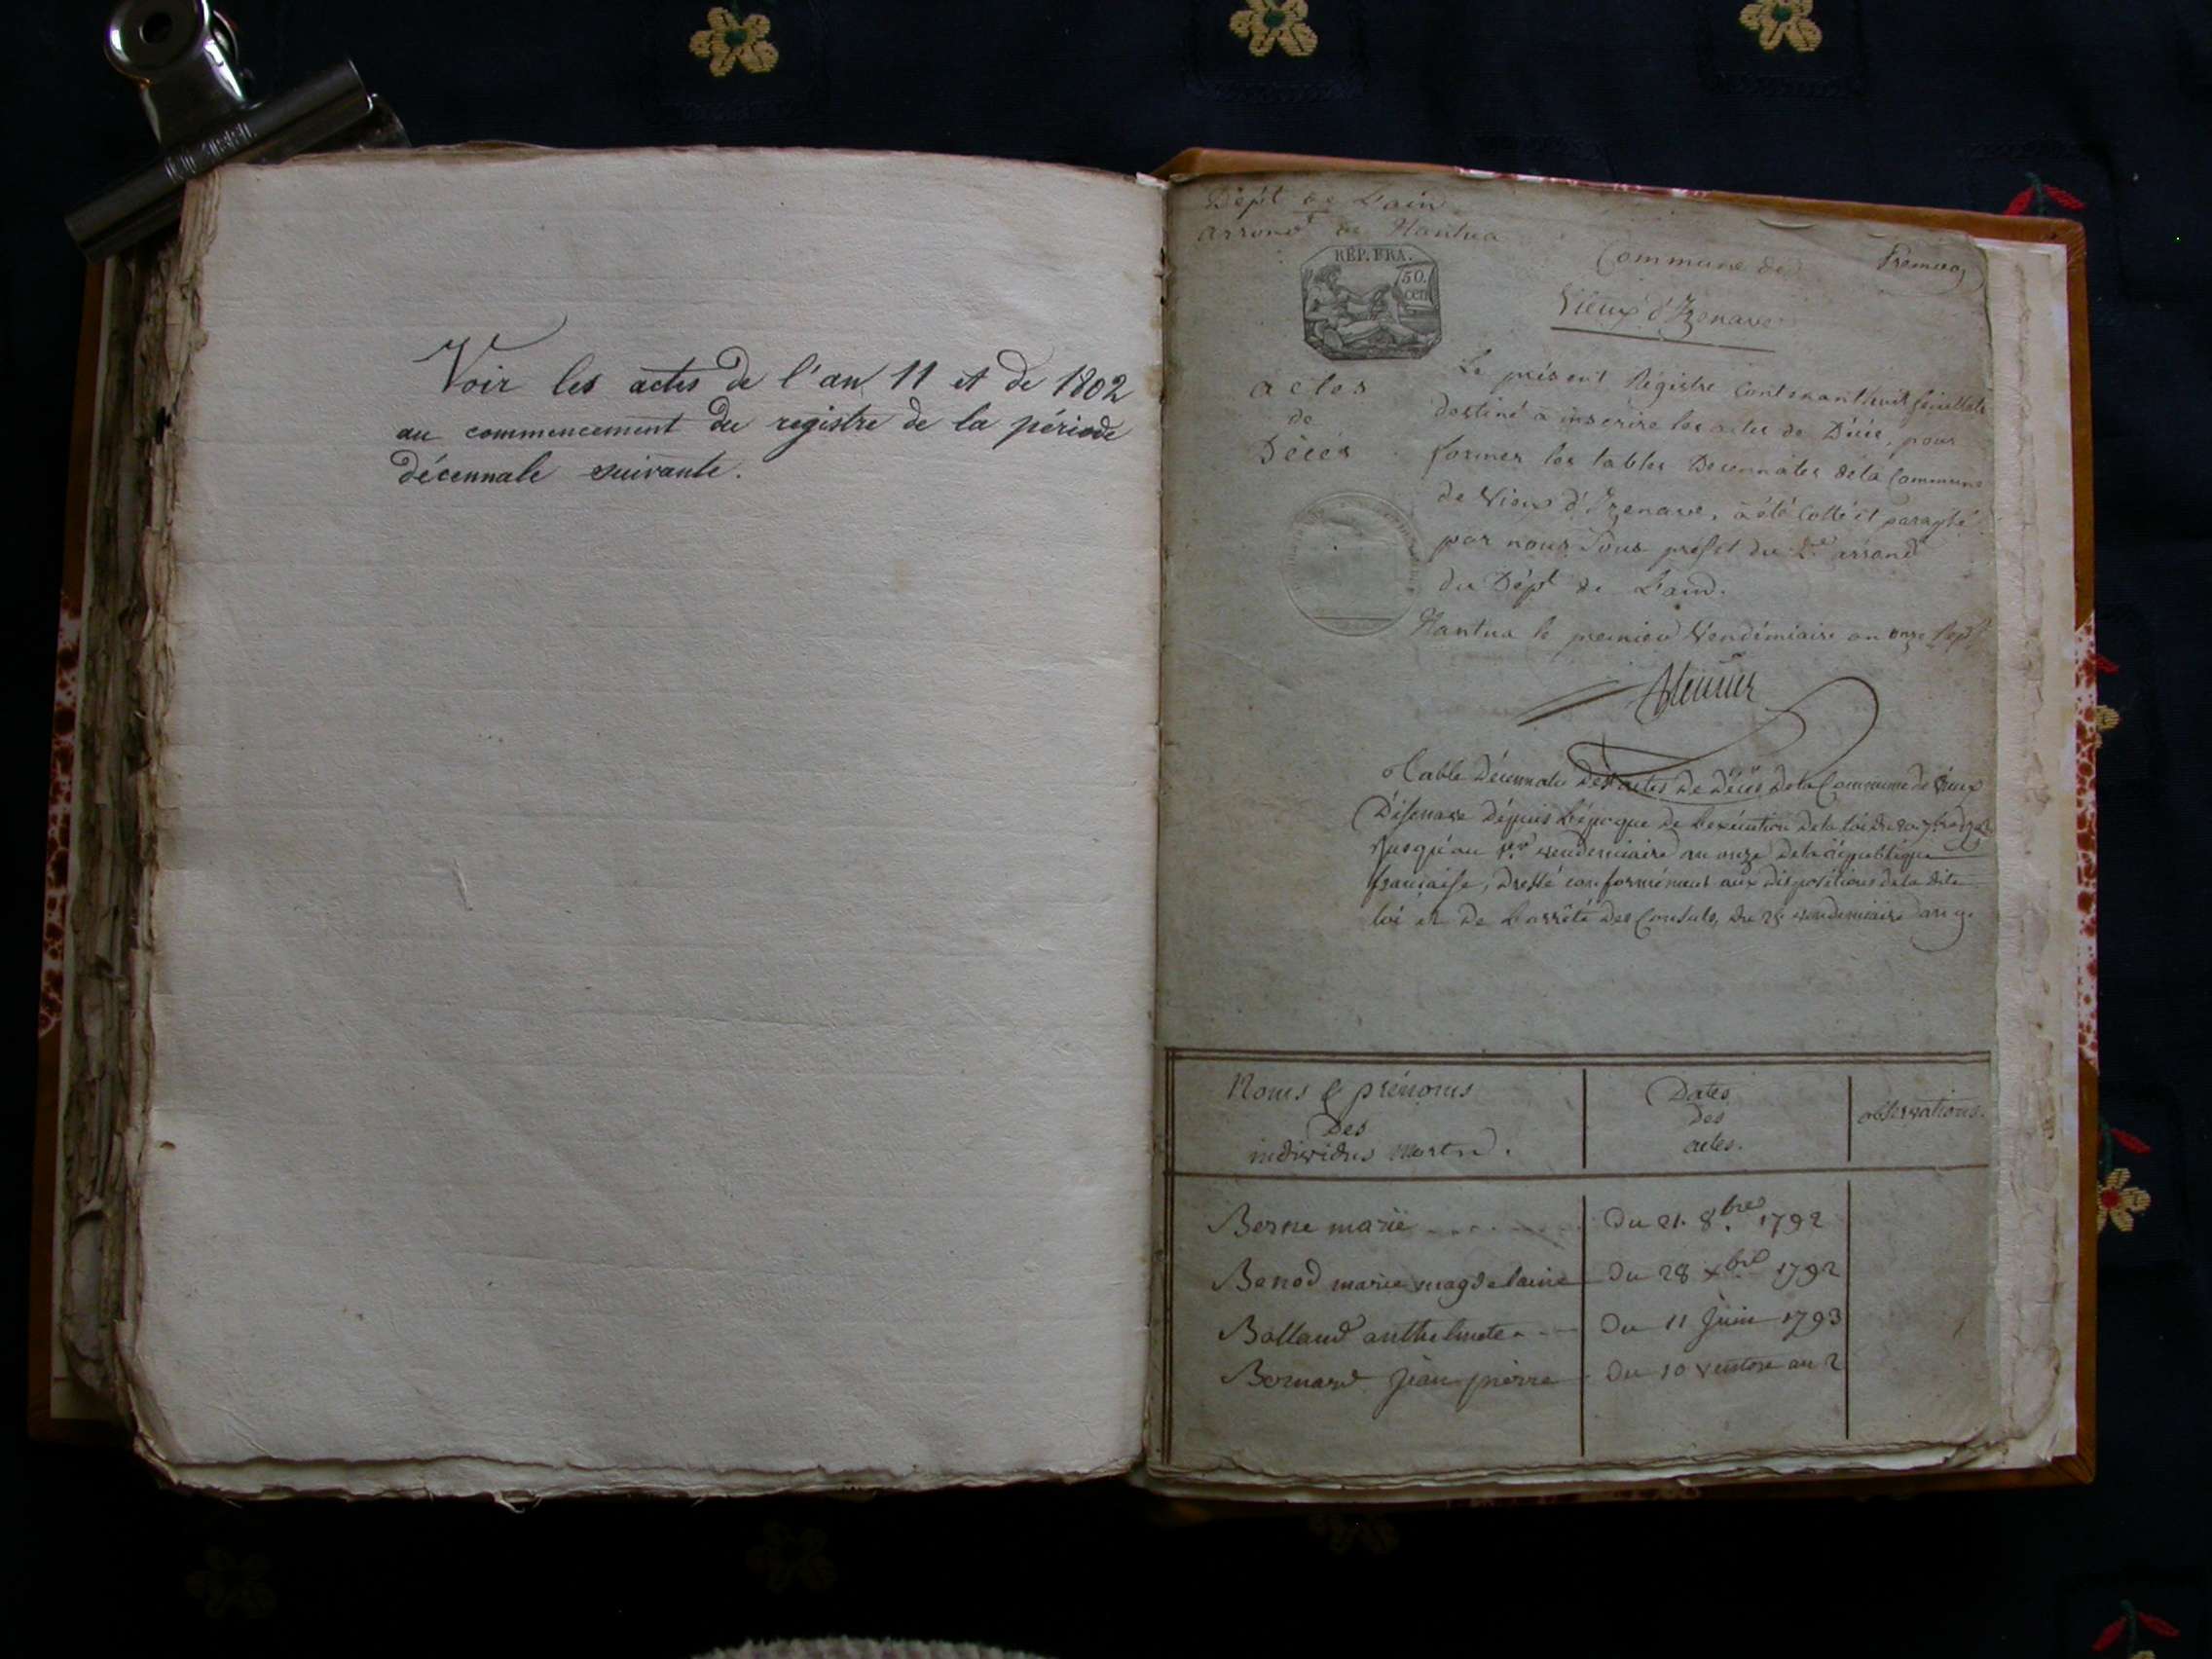 Voir les actes de l'an 11 et de 1802
au commencement du registre de la période
décennale suivante.
Dép.t de L'ain
arrond.t de Nantua
REP. FRA.
50.
cen
Commune de
Premier
Vieux d'Izenave
actes
de
Décés
Le présent Régistre contenant huit feuillets
destiné a inscrire les actes de Décés, pour
former les tables Decennales de la Commune
de Vieux d'Izenave, a été Cotté et paraphé
par nous Sous préfet du 2.e arrond.t
du Dép.t de L'ain.
Nantua le premier Vendémiaire an onze
Table Décennale Des actes De Décés De la Commune de Vieux
D'isenave Dépuis l'époque De l'exécution De la loi du 20. 7bre 1792
Jusqu'au 1er vendemiaire an onze De la République
française, Dressé conformément aux Dispositions de la dite
loi et De l'arrêté Des Consuls, Du 25 vendemiaire an 9.
Noms & prénoms
Des
individus morts.
Dates
des
actes.
observations.
Berne marie
Du 21. 8.bre 1792
Benod marie magdelaine
Du 28 xbre 1792
Balland anthelmete
Du 11 Juin 1793
Bernard Jean pierre
Du 10 ventose an 2